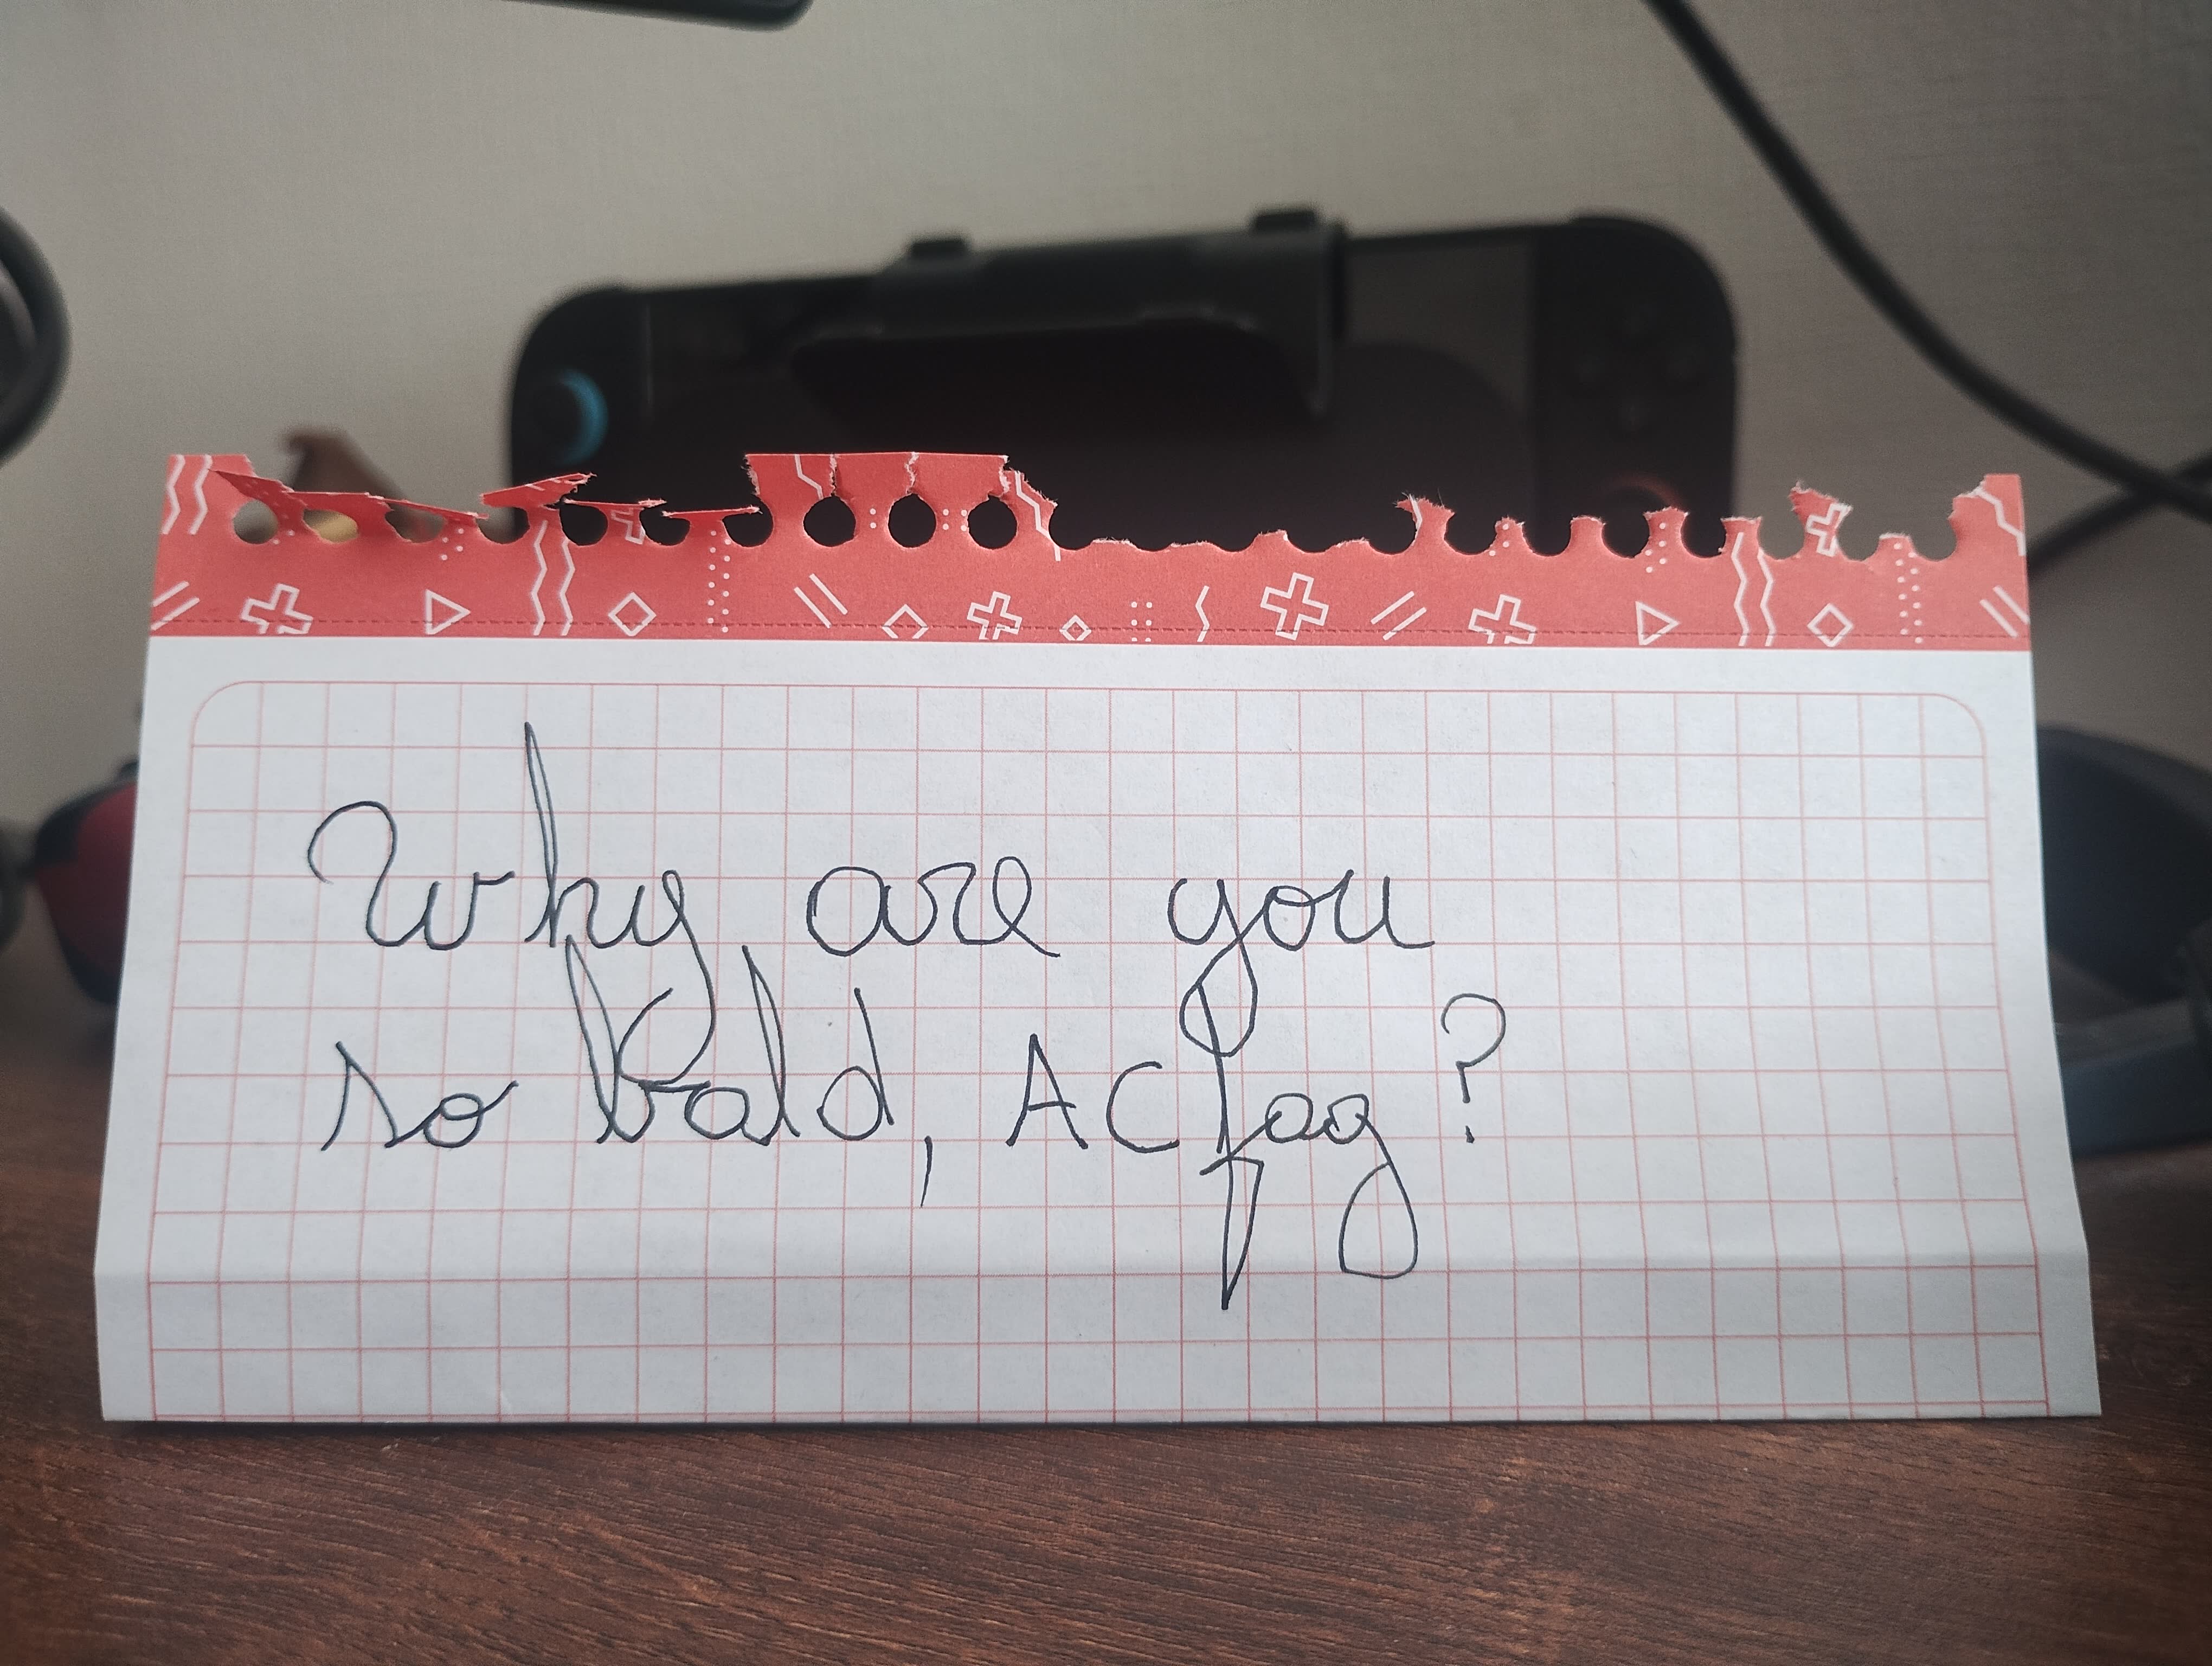 Why are you
so bald, ACfag?